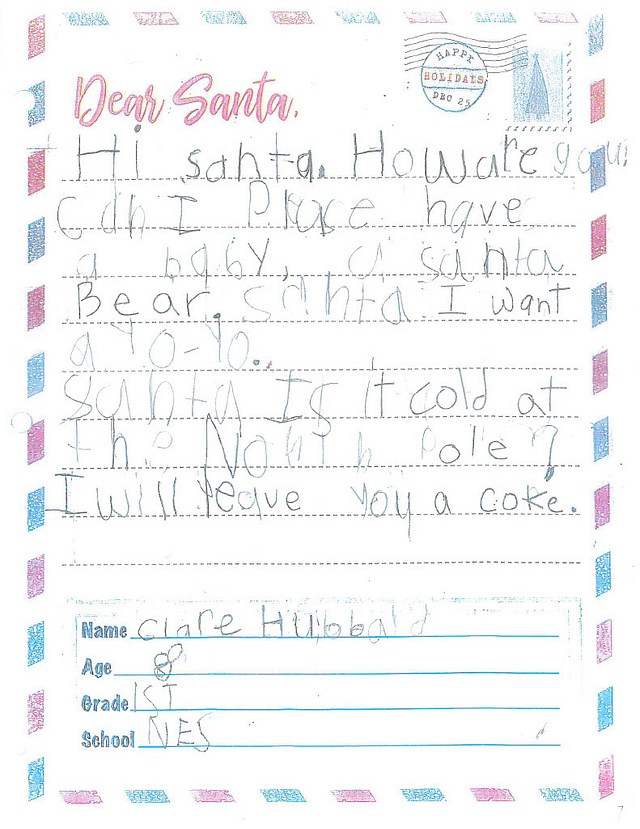 HAPPY
HOLIDAYS
DEC 25
Dear Santa,
Hi santa. How are you.
Can I Please have
a baby, a santa
Bear. santa I want
a Yo-Yo.
Santa Is it cold at
the North Pole?
I will leave you a coke.
Name Clare Hubbald
Age 8
Grade 1ST
School NES
7